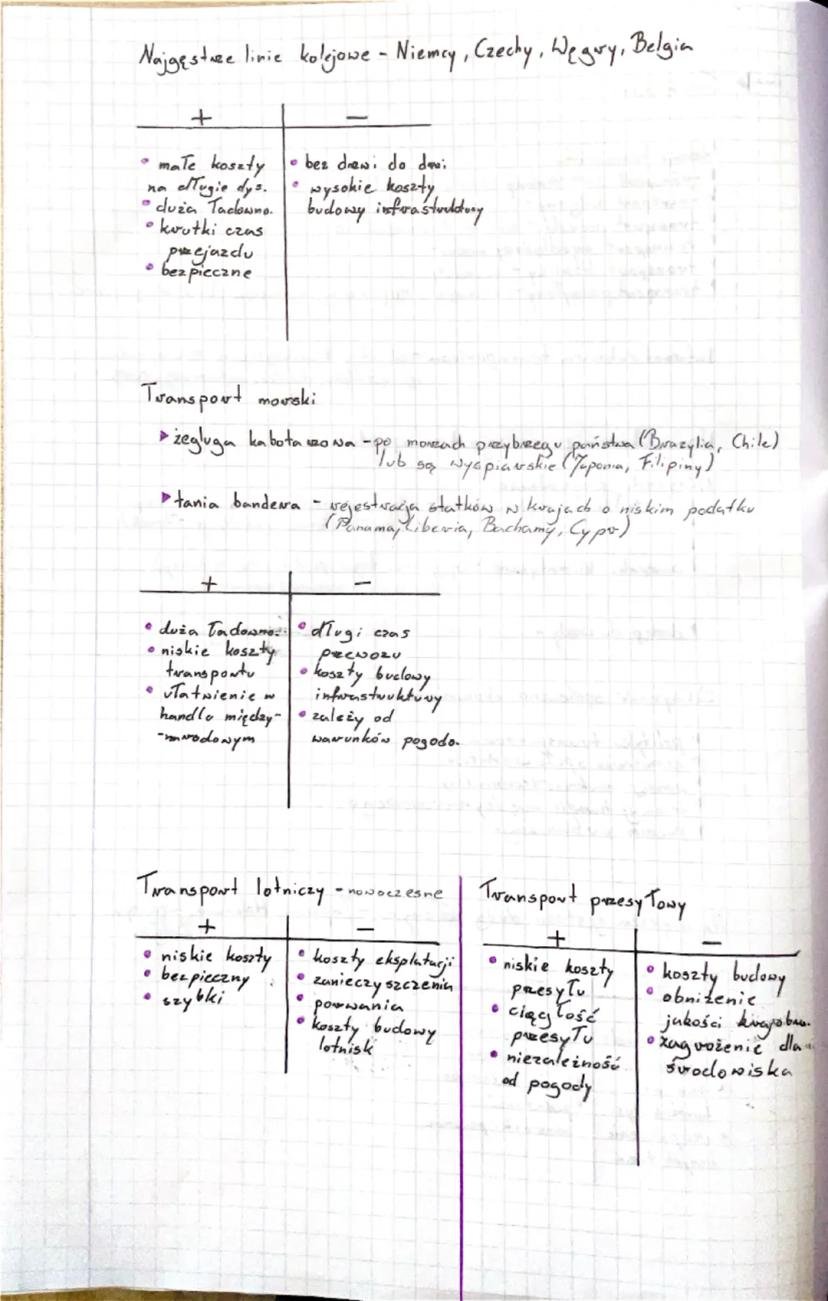 Najgęstsze linie kolejowe - Niemcy, Czechy, Węgry, Belgia
+
• małe koszty
na długie dys.
• duża ładowno.
• krutki czas
przejazdu
• bezpieczne
—
• bez drzwi do drzwi
• wysokie koszty
budowy infrastruktury
Transport morski
▸ żegluga kabotażowa - po morzach przybrzegu państwa (Brazylia, Chile)
lub są wyspiarskie (Japonia, Filipiny)
▸ tania bandera - rejestracja statków w krajach o niskim podatku
(Panama, Liberia, Bachamy, Cypr)
+
• duża ładowno.
• niskie koszty
transportu
• ułatwienie w
handlu między-
-narodowym
—
• długi czas
przewozu
• koszty budowy
infrastruktury
• zależy od
warunków pogodo.
Transport lotniczy - nowoczesne
+
• niskie koszty
• bezpieczny
• szybki
—
• koszty eksplatacji
• zanieczyszczenia
• porwania
• koszty budowy
lotnisk
Transport przesyłowy
+
• niskie koszty
przesyłu
• ciągłość
przesyłu
• niezależność
od pogody
—
• koszty budowy
• obniżenie
jakości krajobra.
• zagrożenie dla
środowiska